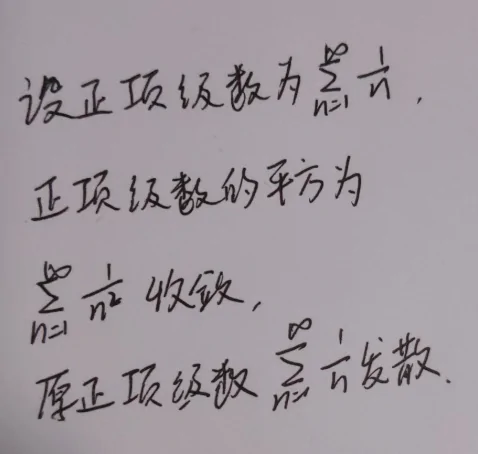 设正项级数为∑_{n=1}^{∞} 1/n,
正项级数的平方为
∑_{n=1}^{∞} 1/n² 收敛,
原正项级数∑_{n=1}^{∞} 1/n 发散.